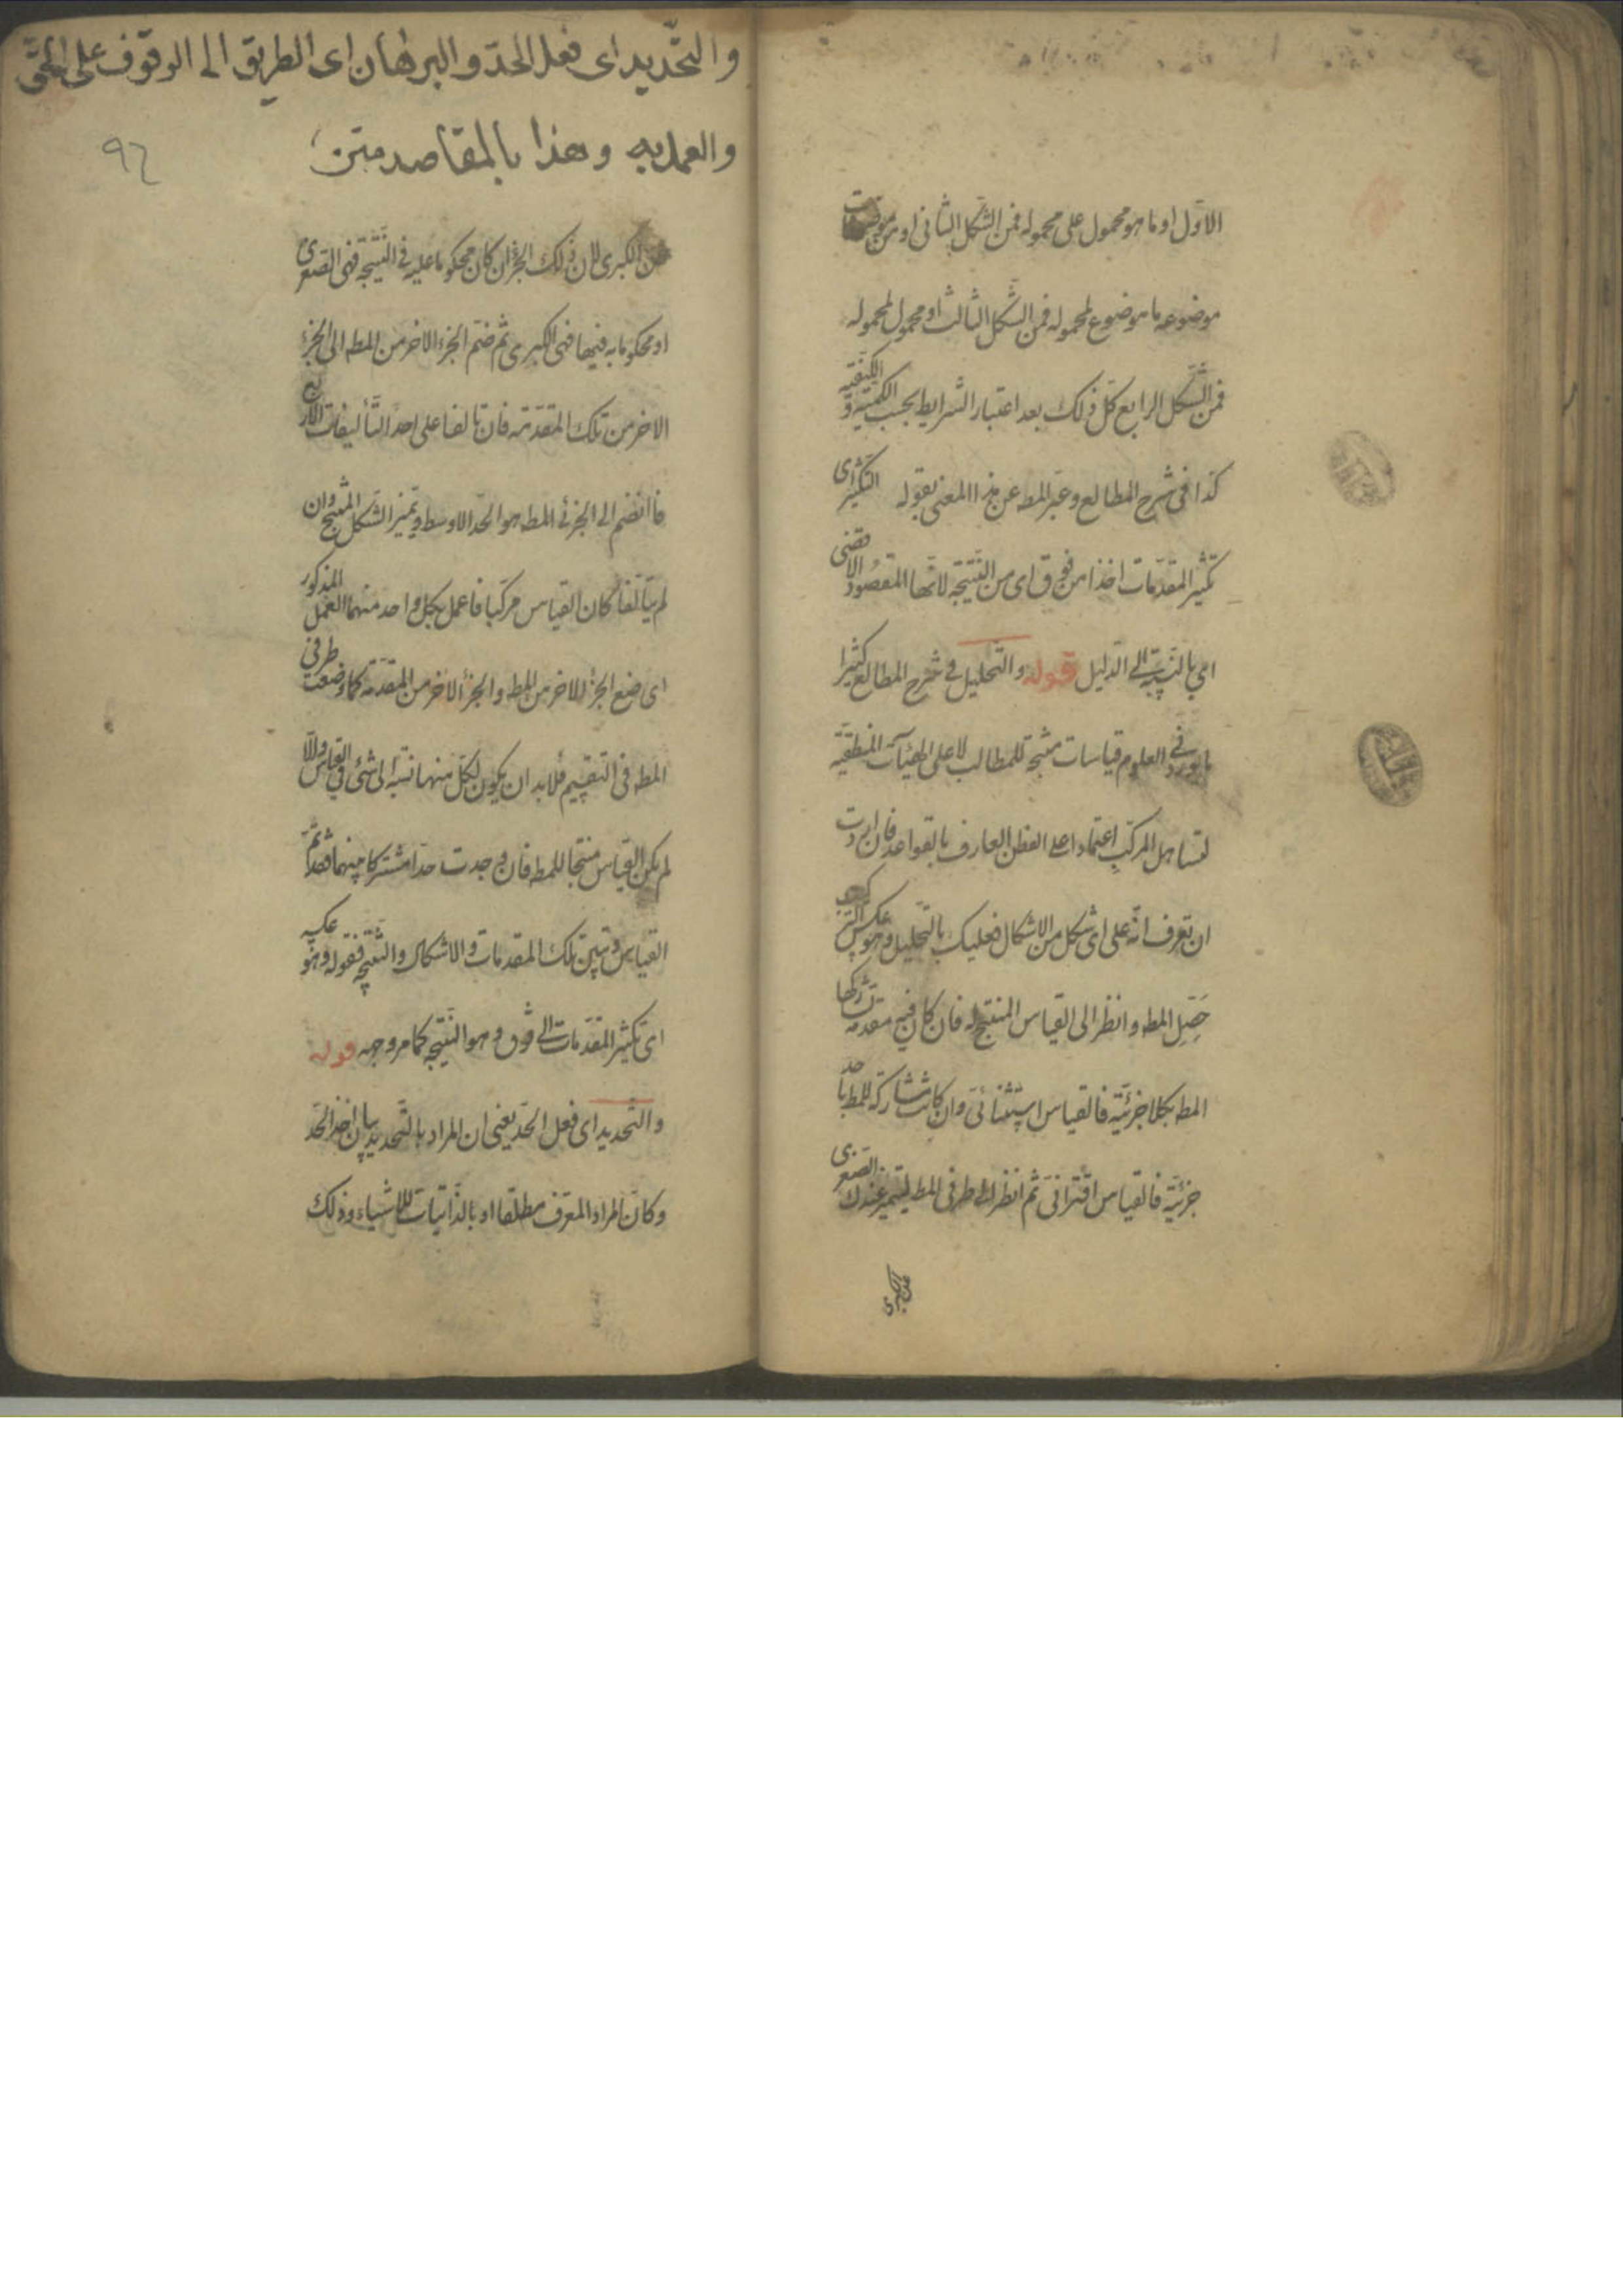 الاول او ما هو محمول على محموله فمن الشكل الثانى او من موضوعات
موضوعه ما موضوع لمحموله فمن الشكل الثالث او محمول لمحموله
فمن الشكل الرابع كل ذلك بعد اعتبار الشرايط بحسب الكمية و الكيفية
كذا فى شرح المطالع و عبر المط عن هذا المعنى بقوله التكثير اى
تكثير المقدمات اخذا من فوق اى من النتيجة لانها المقصود الاقصى
اى بالنسبة الى الدليل قوله و التحليل فى شرح المطالع كثيرا
ما يورد فى العلوم قياسات منتجة للمطالب لا على الهيئات المنطقية
لتساهل المركب اعتمادا على الفطن العارف بالقواعد فان اردت
ان تعرف انه على اى شكل من الاشكال فعليك بالتحليل و هو عكس التركيب
حصل المط و انظر الى القياس المنتج له فان كان فيه مقدمة تشاركها
المط بكلا جزئيه فالقياس استثنائى و ان كانت مشاركة للمط باحد
جزئيه فالقياس اقترانى ثم انظر الى طرفى المط ليتميز عندك الصغرى
عن الكبرى
و التحديد اى فعل الحد و البرهان اى الطريق الى الوقوف على الحق
و العمل به و هذا بالمقاصد متن
٩٦
عن الكبرى لان ذلك الجزء ان كان محكوما عليه فى النتيجة فهى الصغرى
او محكوما به فيها فهى الكبرى ثم ضم الجزء الاخر من المط الى الجزء
الاخر من تلك المقدمة فان تالفا على احد التأليفات الاربع
فما انضم الى الجزئى المط هو الحد الاوسط و يتميز الشكل المنتج و ان
لم يتالفا كان القياس مركبا فاعمل بكل واحد منهما العمل المذكور
اى ضع الجزء الاخر من المط و الجزء الاخر من المقدمة كما وضعت طرفى
المط فى التقسيم فلا بد ان يكون لكل منهما نسبة الى شئ فى القياس و الا
لم يكن القياس منتجا للمط فان وجدت حدا مشتركا بينهما فقد تم
القياس و تبين تلك المقدمات و الاشكال و النتيجة فقوله و هو عكسه
اى تكثير المقدمات الى فوق و هو النتيجة كما مر وجهه قوله
و التحديد اى فعل الحد يعنى ان المراد بالتحديد بيان اخذ الحد
و كان المراد المعرف مطلقا او بالذاتيات للاشياء و ذلك